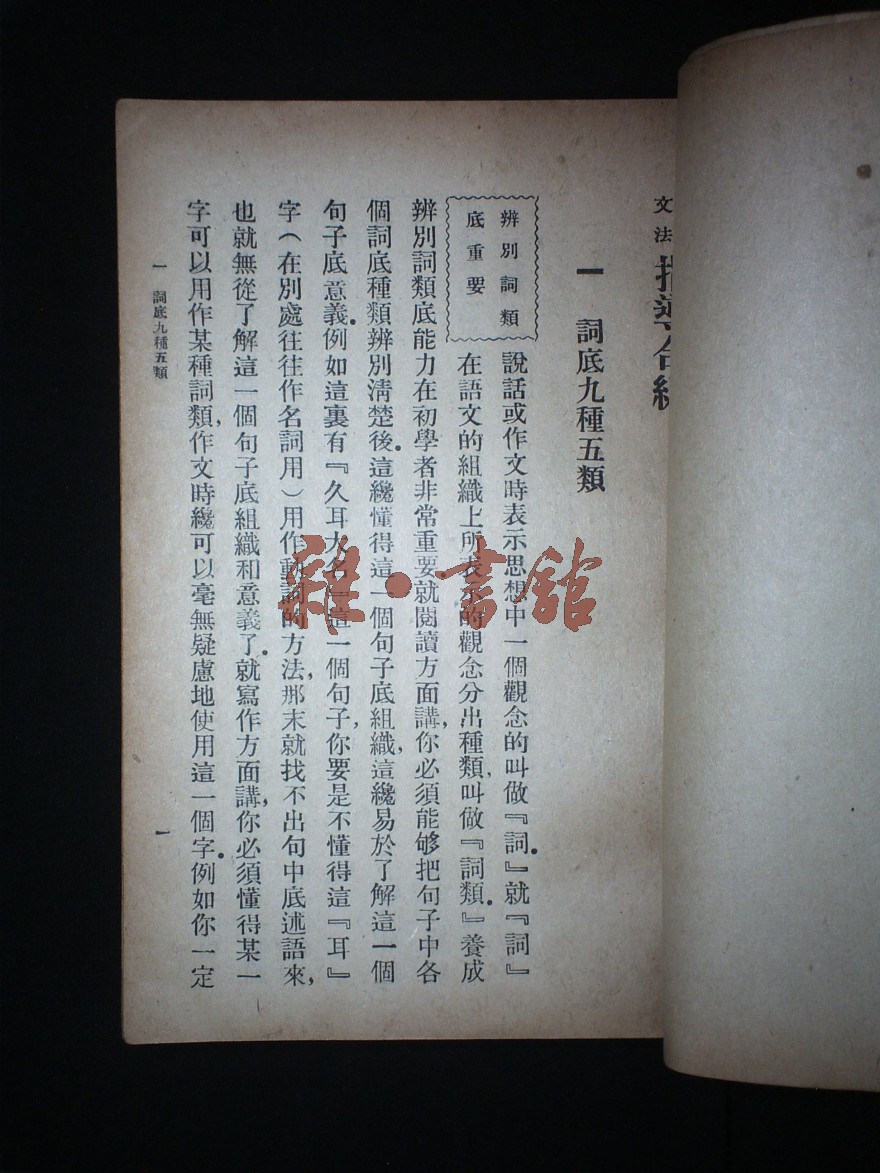 文法
一　詞底九種五類
辨別詞類
底重要
說話或作文時表示思想中一個觀念的叫做『詞』。就『詞』
在語文的組織上所表示的觀念分出種類，叫做『詞類』。養成
辨別詞類底能力在初學者非常重要。就閱讀方面講，你必須能够把句子中各
個詞底種類辨別清楚後。這纔懂得這一個句子底組織，這纔易於了解這一個
句子底意義。例如這裏有『久耳大名』這一個句子，你要是不懂得這『耳』
字（在別處往往作名詞用）用作動詞的方法，那末就找不出句中底述語來，
也就無從了解這一個句子底組織和意義了。就寫作方面講，你必須懂得某一
字可以用作某種詞類，作文時纔可以毫無疑慮地使用這一個字。例如你一定
一　詞底九種五類
一
雜·書館